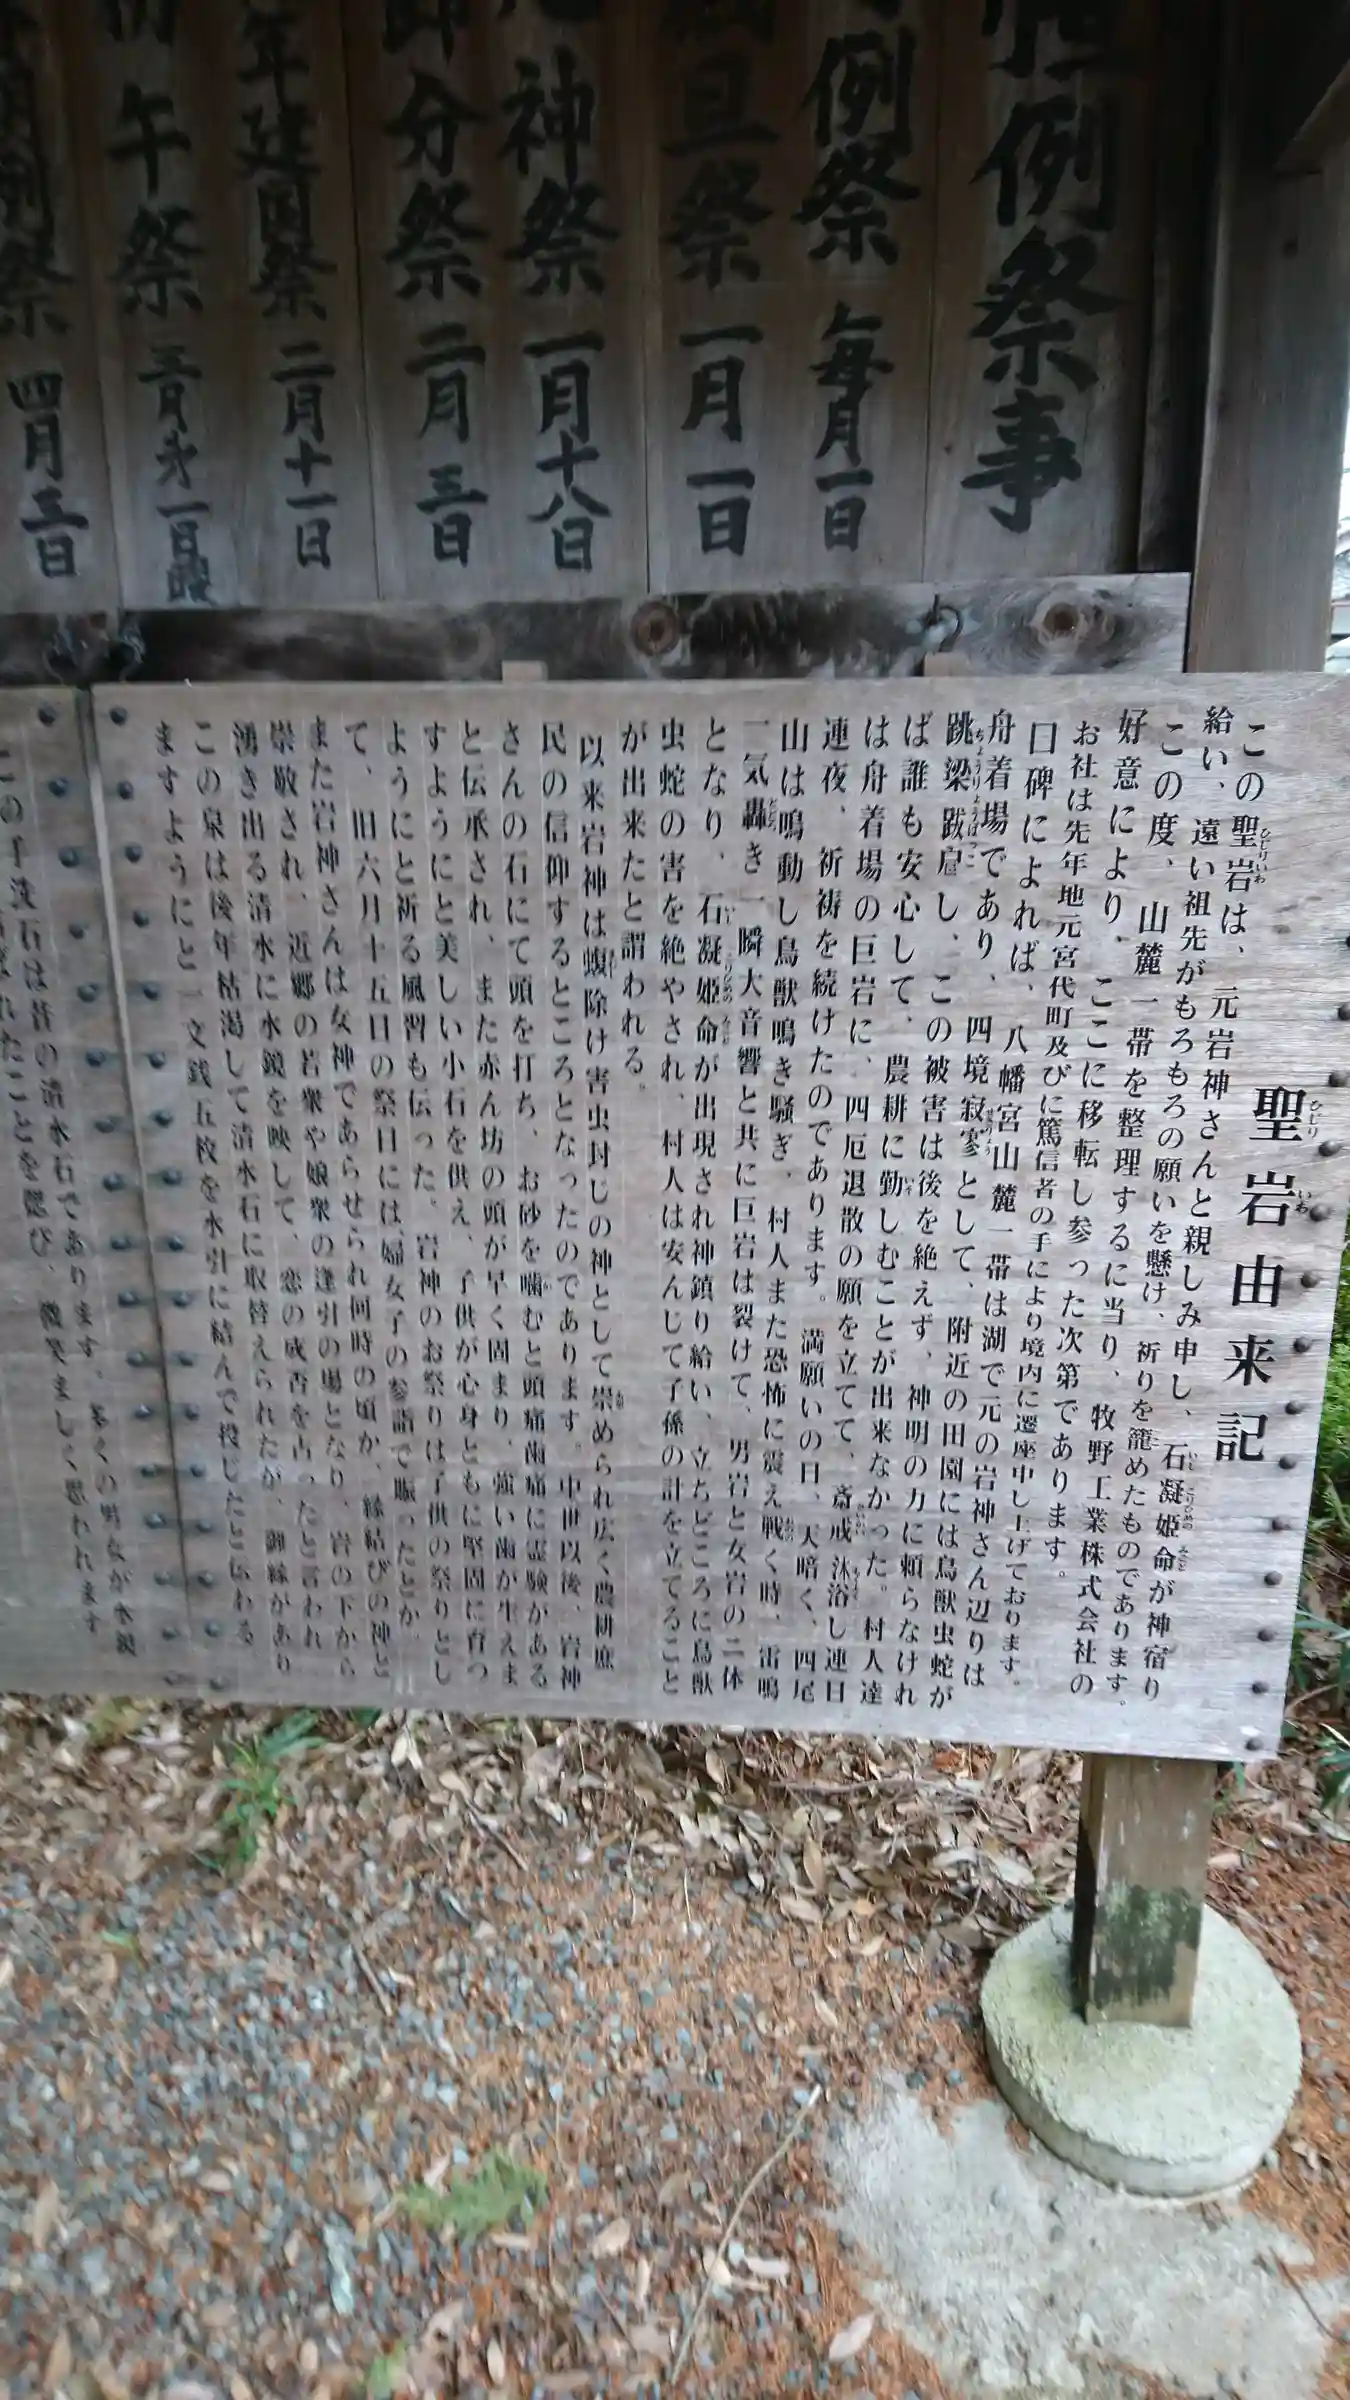 例祭事
例祭 毎月一日
旦祭 一月一日
神祭 一月十八日
分祭 二月三日
年建国祭 二月十一日
午祭 三月
例祭 四月三日
聖岩由来記
ひじりいわ
この聖岩は、元岩神さんと親しみ申し、石凝姫命が神宿り
給い、遠い祖先がもろもろの願いを懸け、祈りを籠めたものであります。
この度、山麓一帯を整理するに当り、牧野工業株式会社の
好意により、ここに移転し参った次第であります。
お社は先年地元宮代町及びに篤信者の手により境内に遷座申し上げております。
口碑によれば、八幡宮山麓一帯は湖で元の岩神さん辺りは
舟着場であり、四境寂寥として、附近の田園には鳥獣虫蛇が
跳梁跋扈し、この被害は後を絶えず、神明の力に頼らなけれ
ば誰も安心して、農耕に勤しむことが出来なかった。村人達
は舟着場の巨岩に、四厄退散の願を立てて、斎戒沐浴し連日
連夜、祈祷を続けたのであります。満願いの日、天暗く、四尾
山は鳴動し鳥獣鳴き騒ぎ、村人また恐怖に震え戦く時、雷鳴
一気轟き一瞬大音響と共に巨岩は裂けて、男岩と女岩の二体
となり、石凝姫命が出現され神鎮り給い、立ちどころに鳥獣
虫蛇の害を絶やされ、村人は安んじて子孫の計を立てること
が出来たと謂われる。
以来岩神は蝮除け害虫封じの神として崇められ広く農耕庶
民の信仰するところとなったのであります。中世以後、岩神
さんの石にて頭を打ち、お砂を噛むと頭痛歯痛に霊験がある
と伝承され、また赤ん坊の頭が早く固まり、強い歯が生えま
すようにと美しい小石を供え、子供が心身ともに堅固に育つ
ようにと祈る風習も伝った。岩神のお祭りは子供の祭りとし
て、旧六月十五日の祭日には、婦女子の参詣で賑ったとか。
また岩神さんは女神であらせられ何時の頃か、縁結びの神と
崇敬され、近郷の若衆や娘衆の逢引の場となり、岩の下から
湧き出る清水に水鏡を映して、恋の成否を占ったと言われ
この泉は後年枯渇して清水石に取替えられたが、御縁があり
ますようにと一文銭五枚を水引に結んで投じたと伝わる
この手洗石は昔の清水石であります。多くの男女が水鏡
ばれたことを偲び、微笑ましく思われます